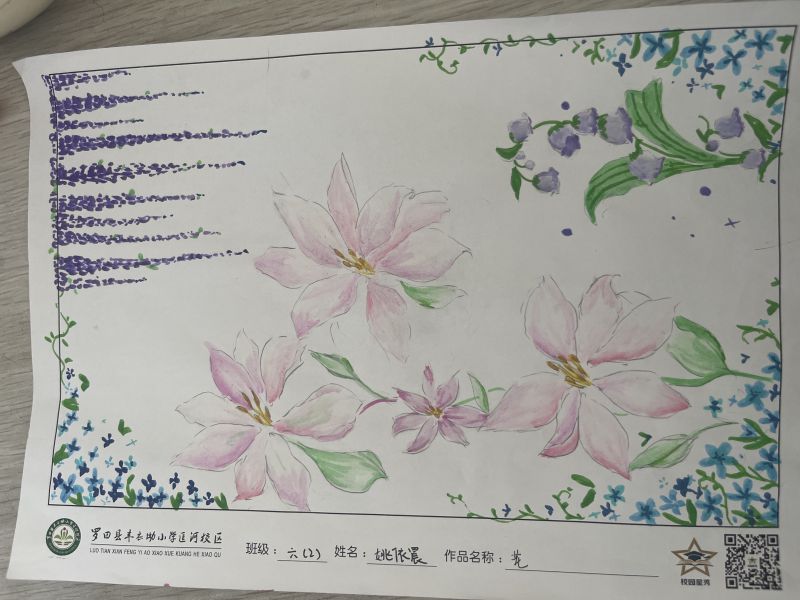 罗田县丰衣坳小学匡河校区
LUO TIAN XIAN FENG YI AO XIAO XUE KUANG HE XIAO QU
班级： 六(2) 姓名： 姚依晨 作品名称：
校园星秀